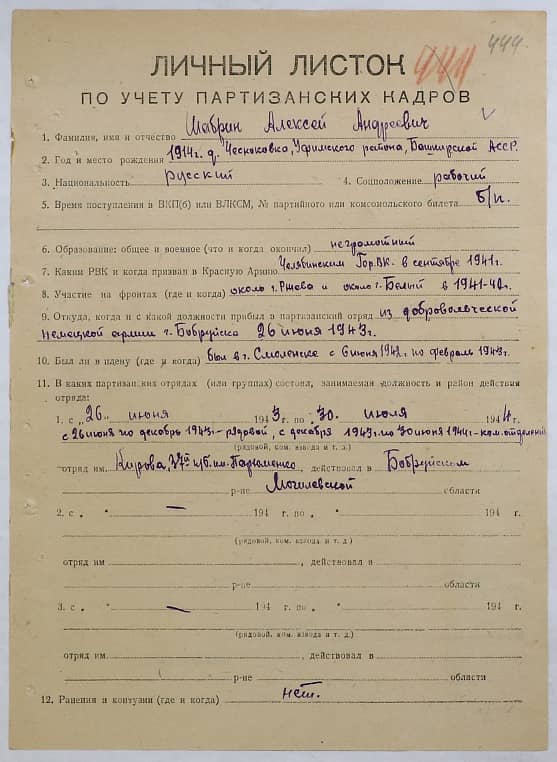 444 444.
ЛИЧНЫЙ ЛИСТОК
ПО УЧЕТУ ПАРТИЗАНСКИХ КАДРОВ
1. Фамилия, имя и отчество Шабрин Алексей Андреевич
2. Год и место рождения 1914г. д. Чесноковка, Уфимского района, Башкирской АССР.
3. Национальность русский 4. Соцположение рабочий
5. Время поступления в ВКП(б) или ВЛКСМ, № партийного или комсомольского билета б/п.
6. Образование: общее и военное (что и когда окончил) неграмотный
7. Каким РВК и когда призван в Красную Армию Челябинским Гор.ВК. в сентябре 1941г.
8. Участие на фронтах (где и когда) около г. Ржева и около г. Белый в 1941-42г.
9. Откуда, когда и с какой должности прибыл в партизанский отряд из добровольческой
немецкой армии г. Бобруйска 26 июня 1943г.
10. Был ли в плену (где и когда) был в г. Смоленске с 6 июня 1942г. по февраль 1943г.
11. В каких партизанских отрядах (или группах) состоял, занимаемая должность и район действия
отряда:
1. с „26" июня 1943 г. по „30" июля 1944 г.
с 26 июня по декабрь 1943г-рядовой, с декабря 1943г. по 30 июня 1944г-ком.отделения
(рядовой, ком. взвода и т. д.)
отряд им. Кирова, 37й п/б. им. Пархоменко, действовал в Бобруйском
р-не Могилевской области
2. с „ — 194 г. по „ " 194 г.
(рядовой, ком. взвода и т. д.)
отряд им. , действовал в
р-не области
3. с „ — 194 г. по „ " 194 г.
(рядовой, ком. взвода и т. д.)
отряд им. , действовал в
р-не области
12. Ранения и контузии (где и когда) нет.